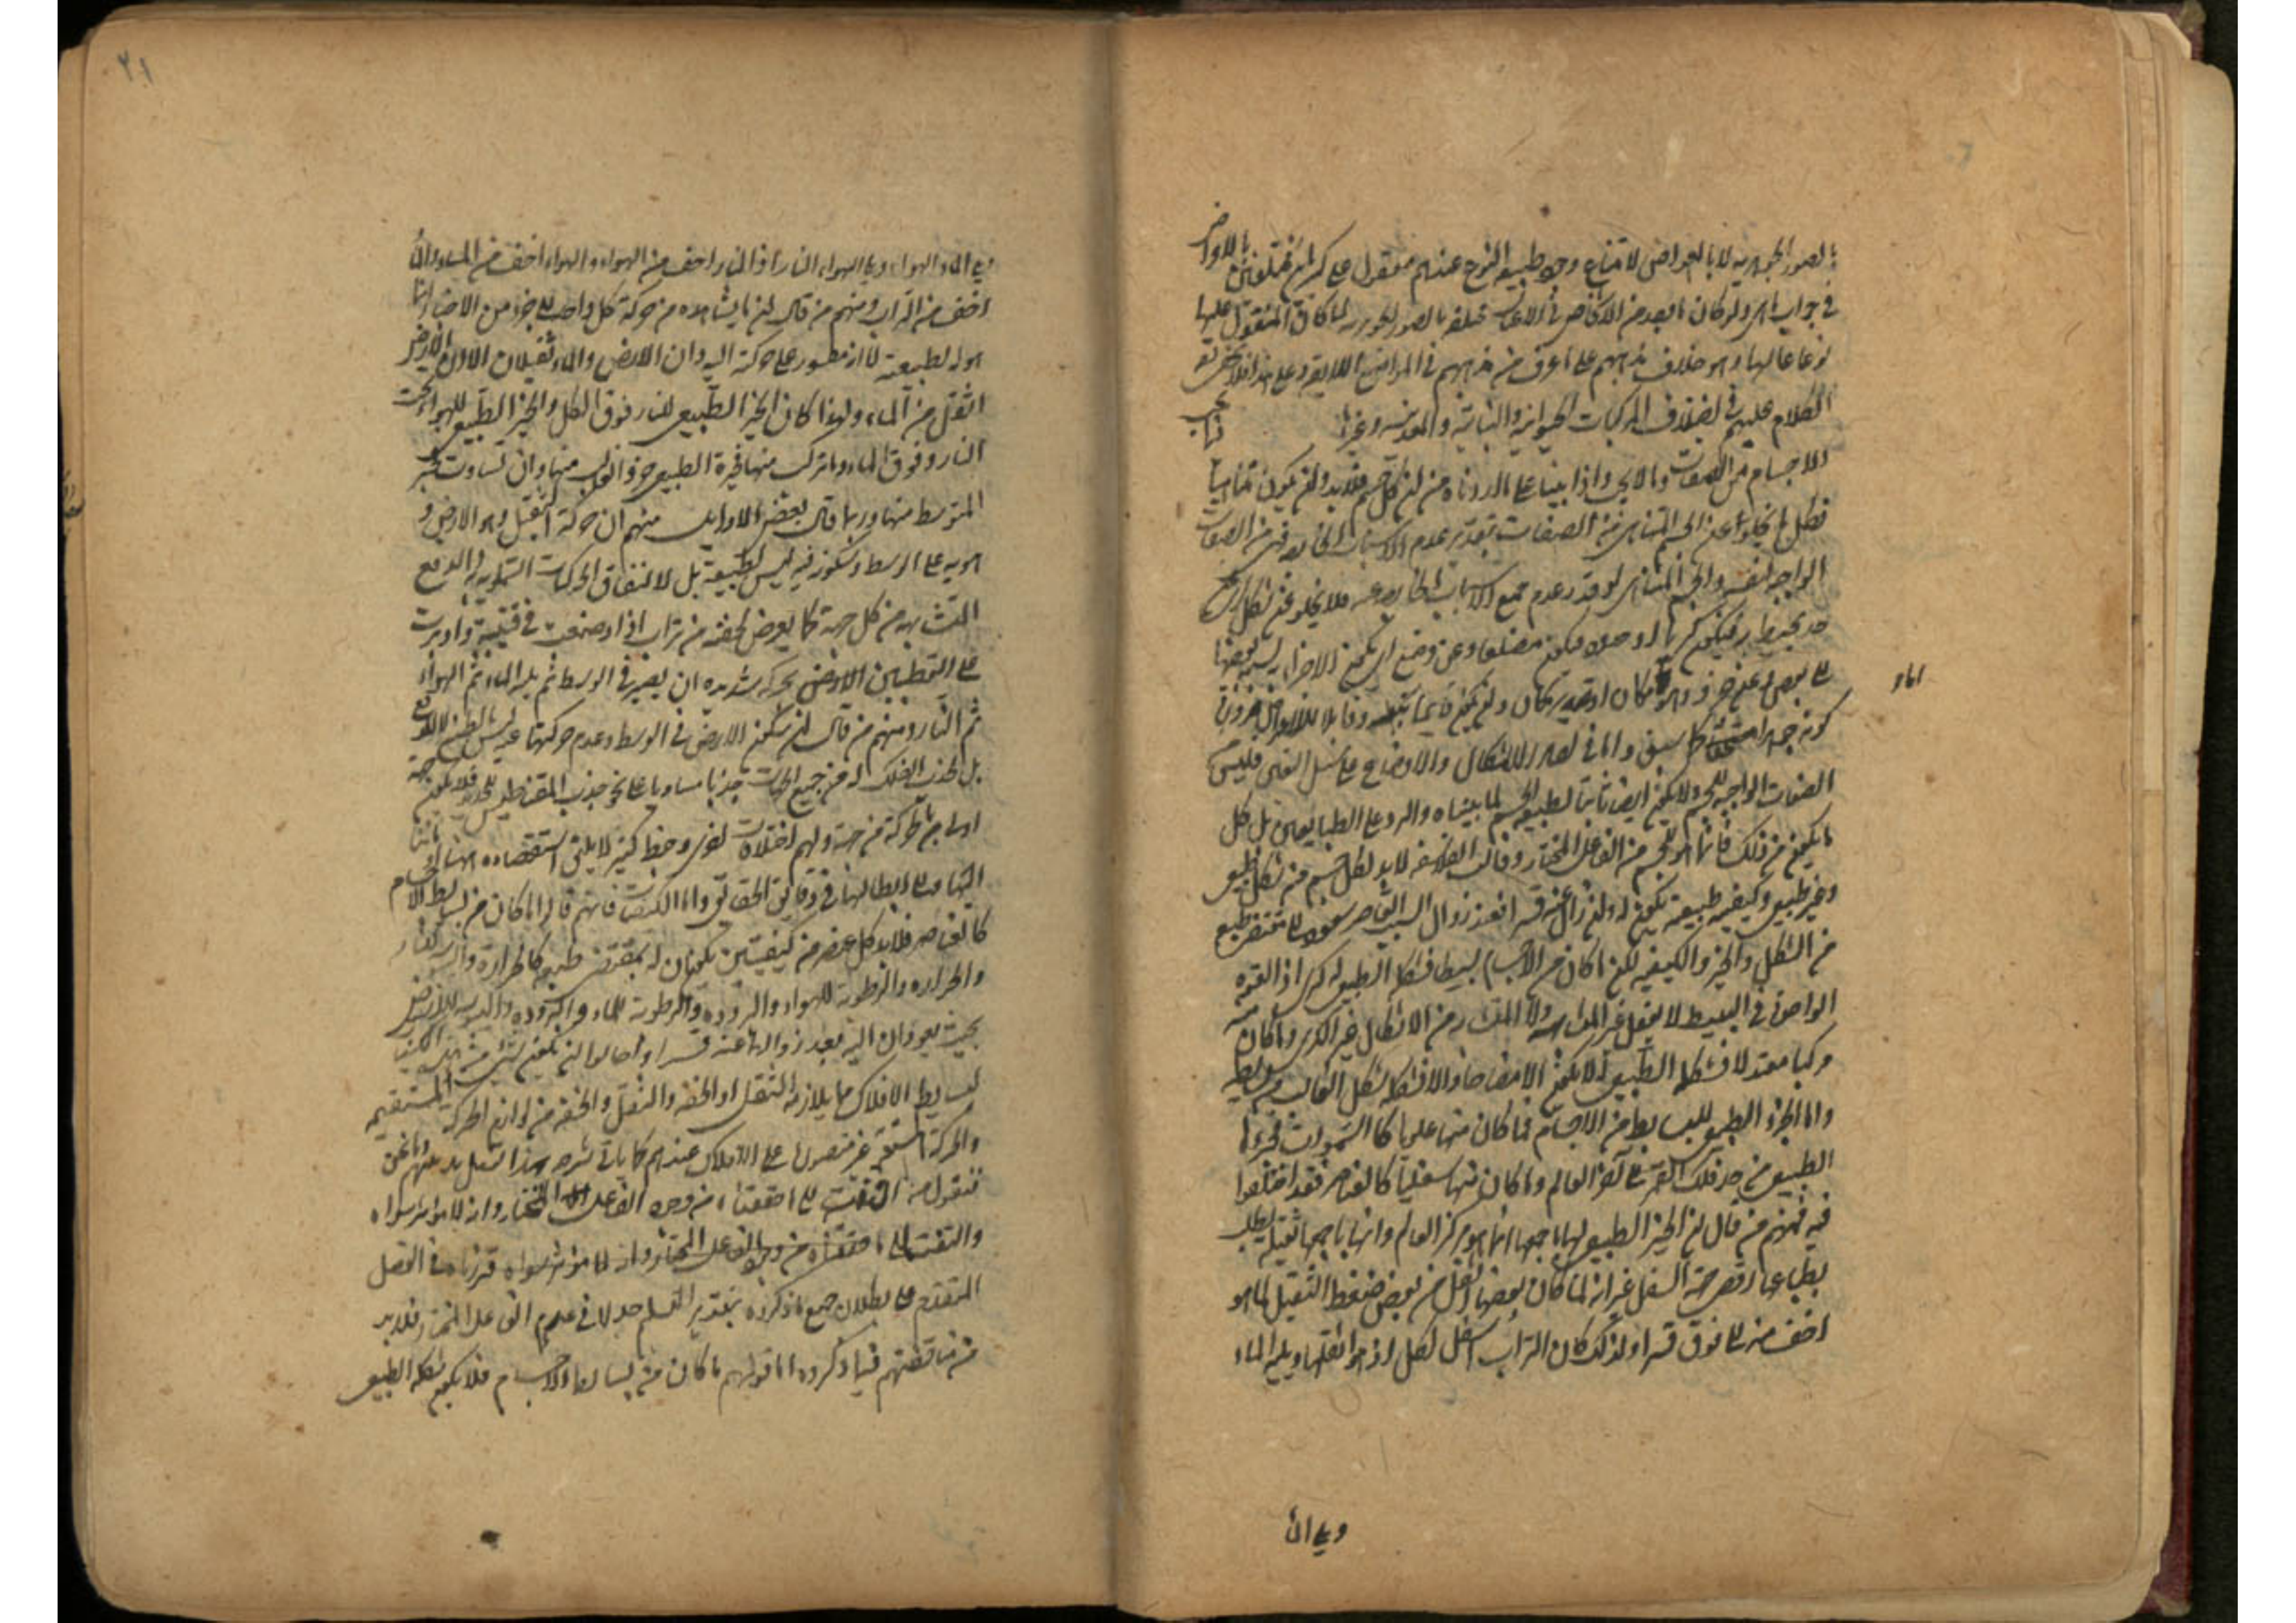 بالصور الجوهريه لا بالعوارض لامتناع وجود طبيعه النوع عندهم مقول على كثيرين مختلفين بالعوارض
في جواب ما هو ولو كان ما بعد من الاشخاص في الاعيان مختلفه بالصور الجوهريه لما كان المقول عليها
نوعا عاليا وهو خلاف مذهبهم على ما عرف من مذهبهم في المواضع اللايقه وعلى هذا فلا يخفى
الكلام عليهم في اختلاف المركبات الحيوانيه والنباتيه والمعدنيه وغيرها فيما يجب
للاجسام من الصفات وما لا يجب واذا بينا على ما اوردناه من ان كل جسم فلا بد وان يكون متناهيا
فكل ما لا يخلوا عن الجسم المتناهي من الصفات بتقدير عدم الاسباب الخارجه فهي من الصفات
الواجبه لنفسه والجسم المتناهي لو قدر عدم جميع الاسباب الخارجه عنه فلا يخلو عن شكل
حد يحيط به فيكون كريا او حدود فيكون مضلعا وعن وضع اي يكون الاجزاء نسبة بعضها
الى بعض وعن حيز وهو مكان او تقدير مكان وان يكون قائما بنفسه وقابلا للاعراض ضرورة
اما
كونه جوهرا متحيزا كما سبق واما في تعدد الاشكال والاوضاع على سبيل التعين فليس
الصفات الواجبه للجسم ولا يكون ايضا ثابتا لطبيعه الجسم لما بيناه والرد على الطبايعيين بل كل
ما يكون من ذلك فانما هو للجسم من الفاعل المختار وقالت الفلاسفه لا بد لكل جسم من شكل طبيعي
وحيز طبيعي وكيفيه طبيعيه تكون له وان زال عنه قسرا فعند زوال السبب القاسر يعود الى مقتضى طبعه
من الشكل والحيز والكيفيه لكن ما كان من الاجسام بسيطا فشكله الطبيعي له كرى اذ القوة
الواحدة في البسيط لا تفعل غير المتشابه ولا المتشابه من الاشكال غير الكرى وما كان منه
مركبا معتدلا فشكله الطبيعي لا يكون الا مضاهيا والا فشكله شكل الغالب من بسايطه
واما الحيز الطبيعي للبسايط من الاجسام فما كان منها علويا كالسموات فحيزها
الطبيعي من حد فلك القمر الى آخر العالم وما كان منها سفليا كالعناصر فقد اختلفوا
فيه فمنهم من قال ان الحيز الطبيعي لها باجمعها انما هو مركز العالم وانها باجمعها ثقيله يطلب
بطباعها اقصى جهة السفل غير انه لما كان بعضها اثقل من بعض ضغط الثقيل لما هو
اخف منه الى فوق قسرا ولذلك كان التراب اسفل الكل اذ هو اثقلها ويليه الماء
ويلي الماء
٢١
ويلي الماء الهواء ويلي الهواء النار اذ النار اخف من الهواء والهواء اخف من الماء والماء
اخف من التراب ومنهم من قال ان ما يشاهد من حركة كل واحد الى حيز من الاحياز انما
هو له لطبيعته لانه مفطور على حركة اليه وان الارض والماء ثقيلان الا ان الارض
اثقل من الماء ولهذا كان الحيز الطبيعي للنار فوق الكل والحيز الطبيعي للهواء تحت
النار وفوق الماء وما تركب منها فحيزه الطبيعي حيز الغالب منها وان تساوت فحيز
المتوسط منها وربما قال بعض الاوايل منهم ان حركة الثقيل وهو الارض
هويه على الوسط وسكونه فيه ليس لطبيعته بل لاتفاق الحركات السماويه في الدفع
المتشابه من كل جهة كما يعرض لحفنة من تراب اذا وضعت في قنينة وادبرت
على القطبين الارض حركه شديده ان يصير في الوسط ثم يليه الماء ثم الهواء
ثم النار ومنهم من قال ان سكون الارض في الوسط وعدم حركتها عنه ليس بالطبع ولا للدفع
بل لجذب الفلك له من جميع الجهات جذبا متساويا على نحو جذب المقناطيس للحديد فلا يكون جهة
اولى بالحركة من جهة ولهم اختلاف اخر وخبط كثير لا يليق استقصاءه هاهنا
التها الى ابطالها في دقايق الحقايق واما الكيفيات فانهم قالوا ما كان من بسايط الاجسام
كالعناصر فلا بد لكل عنصر من كيفيتين تكونان له بمقتضى طبعه كالحرارة واليبس للنار
والحراره والرطوبة للهواء والبرودة والرطوبة للماء والبرودة واليبوسه للارض
بحيث يعودان اليه بعد زوالهما عنه قسرا واحالوا ان يكون شيء من هذه الكيفيات
لبسايط الافلاك مما يلازمه الثقل او الخفه والثقل والخفه من لوازم الحركة المستقيمه
والحركة المستقيمه غير متصوره على الافلاك عندهم كما ياتي شرحه هذا تفصيل مذهبهم ونحن
فنقول متى التفت الى ما حققناه من وجود الفاعل المختار وانه لا مؤثر سواه
والتفت الى ما حققناه من وجود الفاعل المختار وانه لا مؤثر سواه قررناه في الفصل
المتقدم على بطلان جميع ما ذكروه بتقدير التسليم جدلا في عدم الفاعل المختار فلا بد
من مناقضتهم فيما ذكروه اما قولهم ما كان من بسايط الاجسام فلا يكون شكله الطبيعي